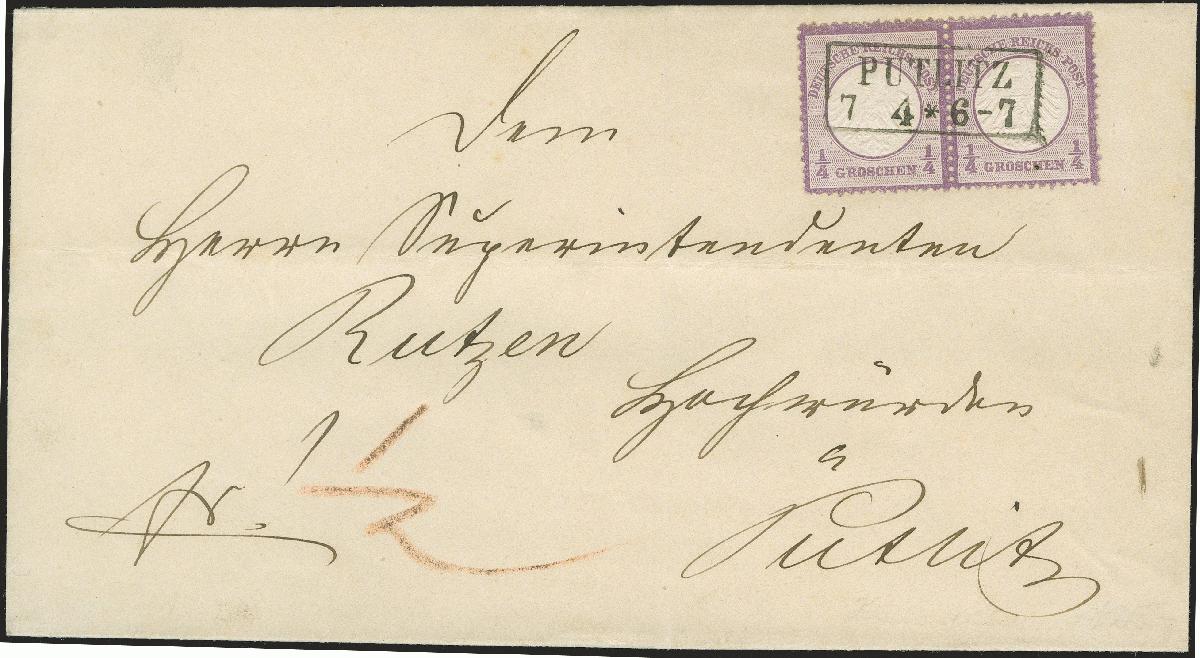 DEUTSCHE REICHS-POST DEUTSCHE REICHS-POST
PUTLITZ
7 4 * 6-7
1/4 GROSCHEN 1/4 1/4 GROSCHEN 1/4
Dem
Herrn Superintendenten
Rutzen
Hochwürden
fr.
1/2
Putlitz